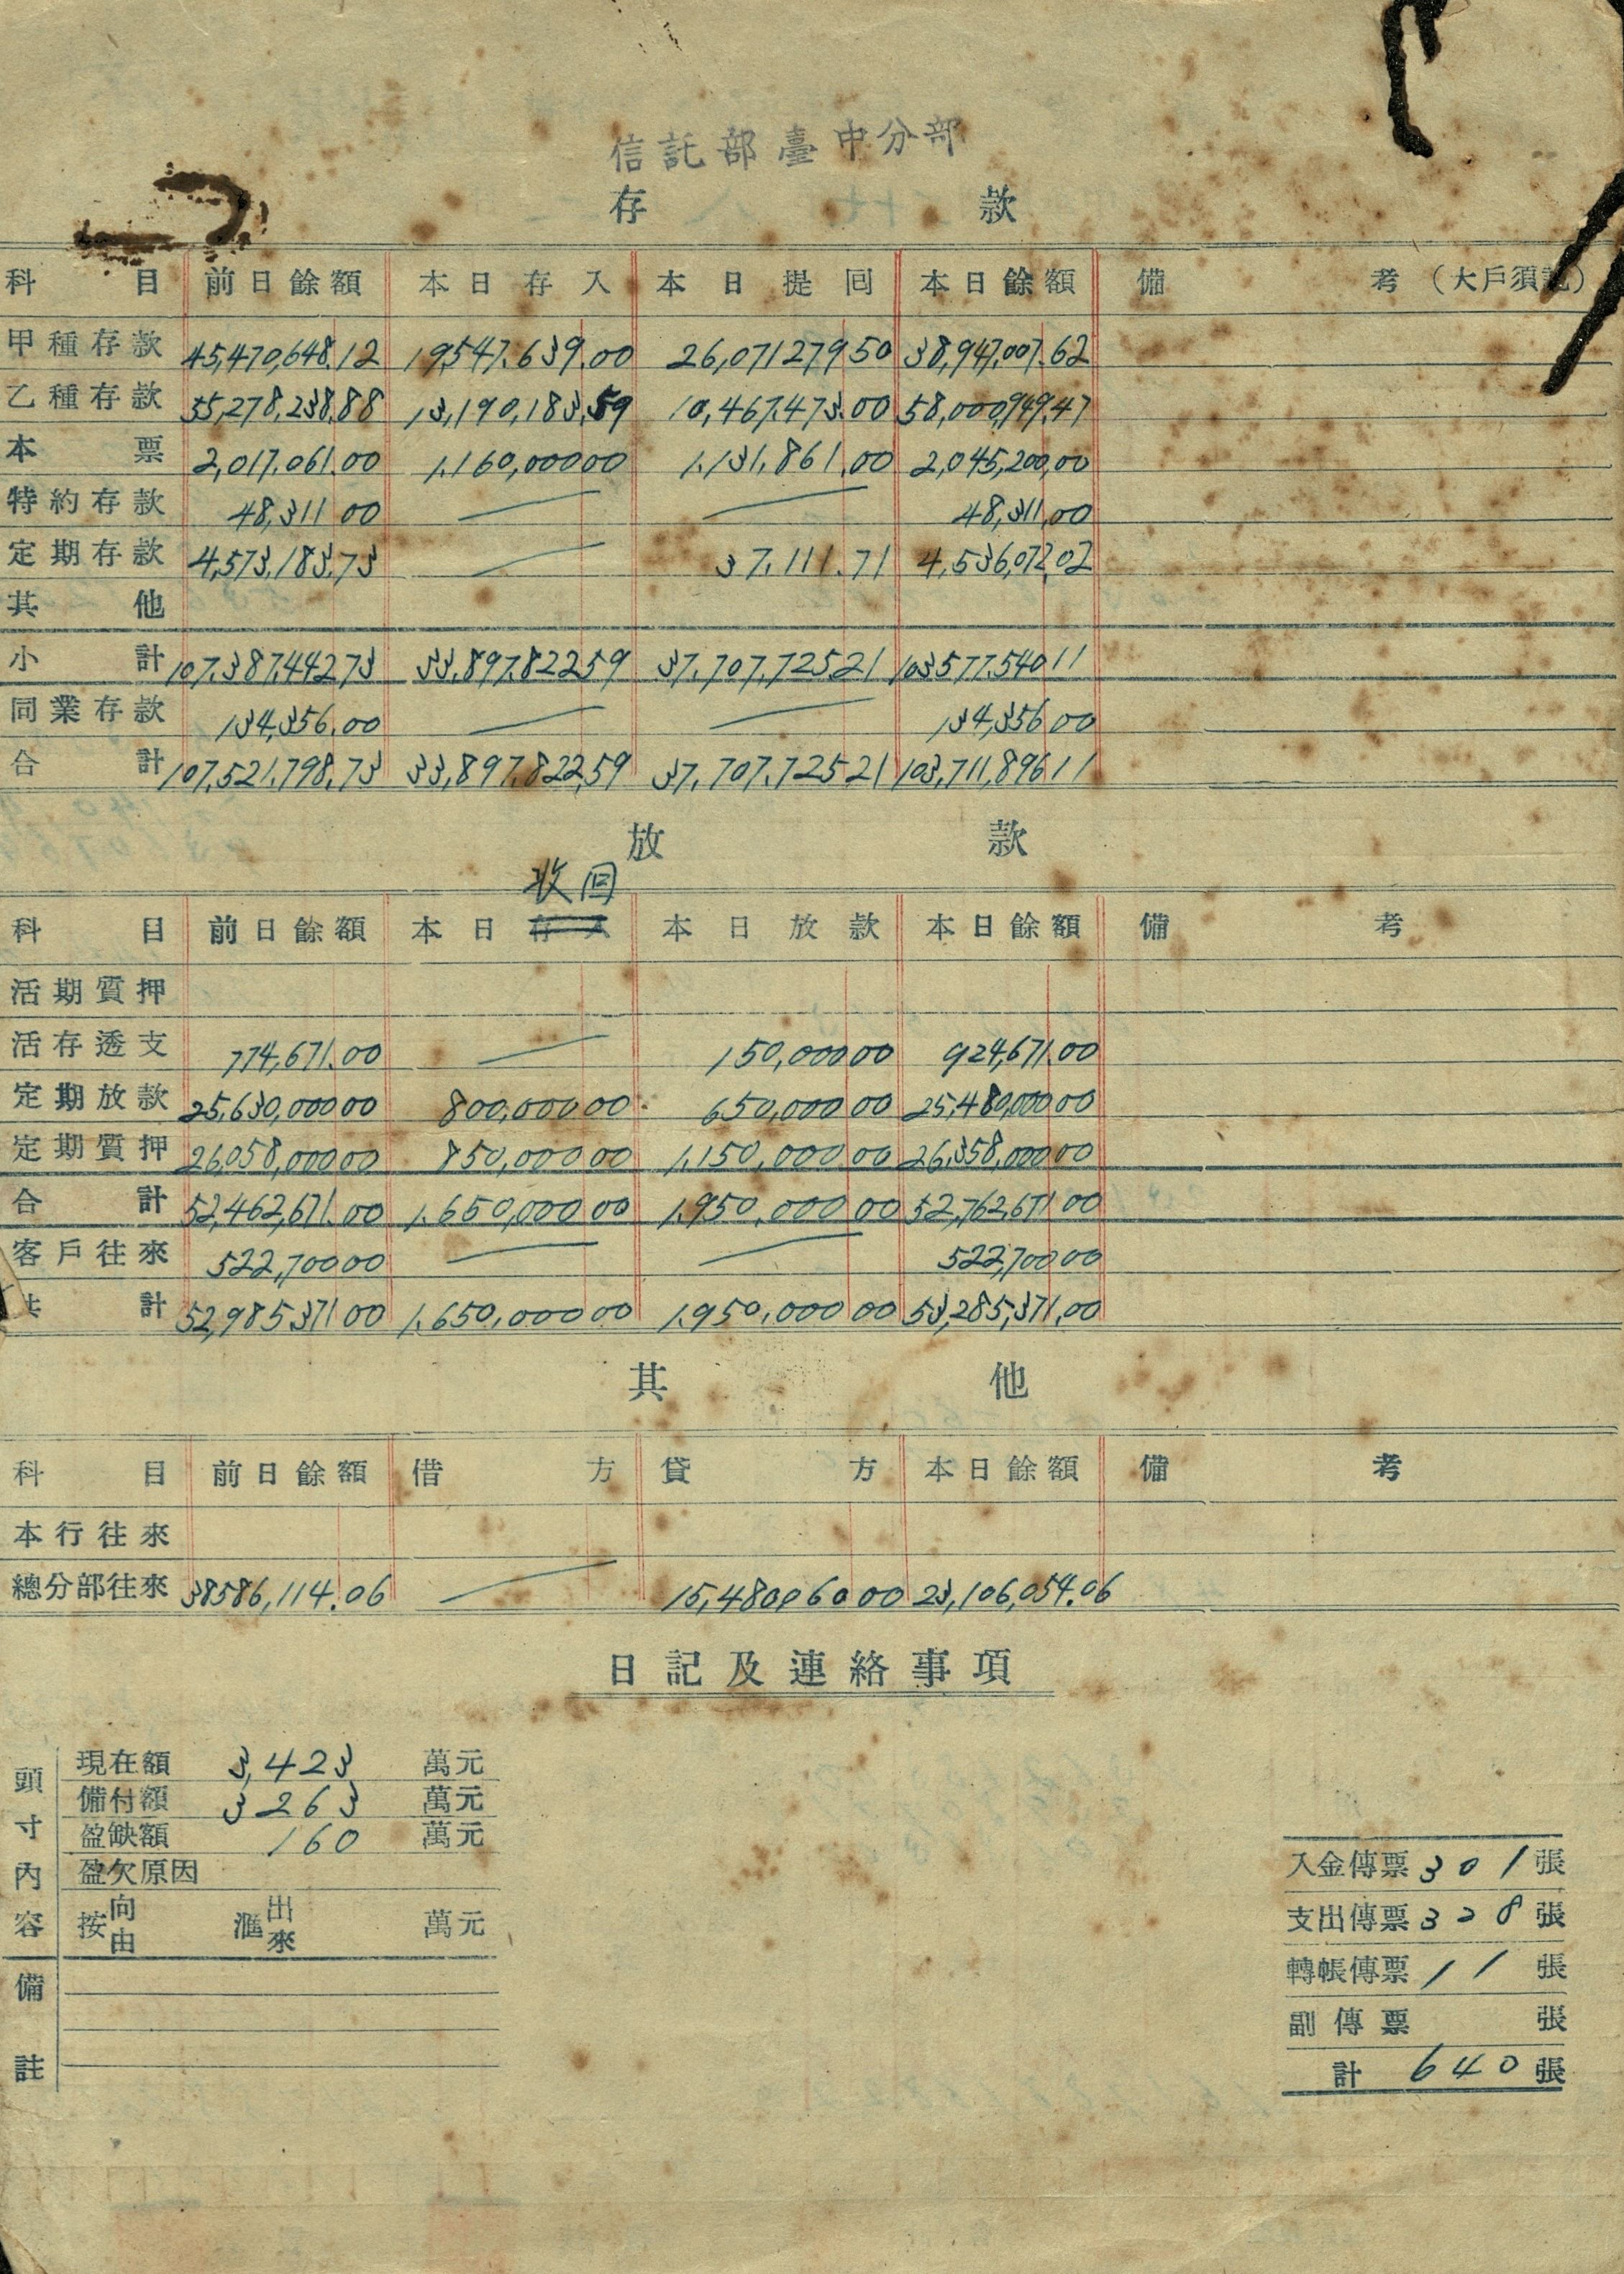 信託部臺中分部
存款
科目 前日餘額 本日存入 本日提回 本日餘額 備考（大戶須記）
甲種存款 45,470,648.12 19,547,639.00 26,071,279.50 38,947,007.62
乙種存款 55,278,238.88 13,190,183.59 10,467,473.00 58,000,949.47
本票 2,017,061.00 1,160,000.00 1,131,861.00 2,045,200.00
特約存款 48,311.00 — — 48,311.00
定期存款 4,573,183.73 — 37,111.71 4,536,072.02
其他
小計 107,387,442.73 33,897,822.59 37,707,725.21 103,577,540.11
同業存款 134,356.00 — — 134,356.00
合計 107,521,798.73 33,897,822.59 37,707,725.21 103,711,896.11
放款
收回
科目 前日餘額 本日存入 本日放款 本日餘額 備考
活期質押
活存透支 774,671.00 — 150,000.00 924,671.00
定期放款 25,630,000.00 800,000.00 650,000.00 25,480,000.00
定期質押 26,058,000.00 850,000.00 1,150,000.00 26,358,000.00
合計 52,462,671.00 1,650,000.00 1,950,000.00 52,762,671.00
客戶往來 522,700.00 — — 522,700.00
共計 52,985,371.00 1,650,000.00 1,950,000.00 53,285,371.00
其他
科目 前日餘額 借方 貸方 本日餘額 備考
本行往來
總分部往來 38,586,114.06 — 15,480,060.00 23,106,054.06
日記及連絡事項
頭寸內容
現在額 3,423 萬元
備付額 3263 萬元
盈缺額 160 萬元
盈欠原因
按向由 滙出來 萬元
備註
入金傳票 301 張
支出傳票 328 張
轉帳傳票 11 張
副傳票 張
計 640 張